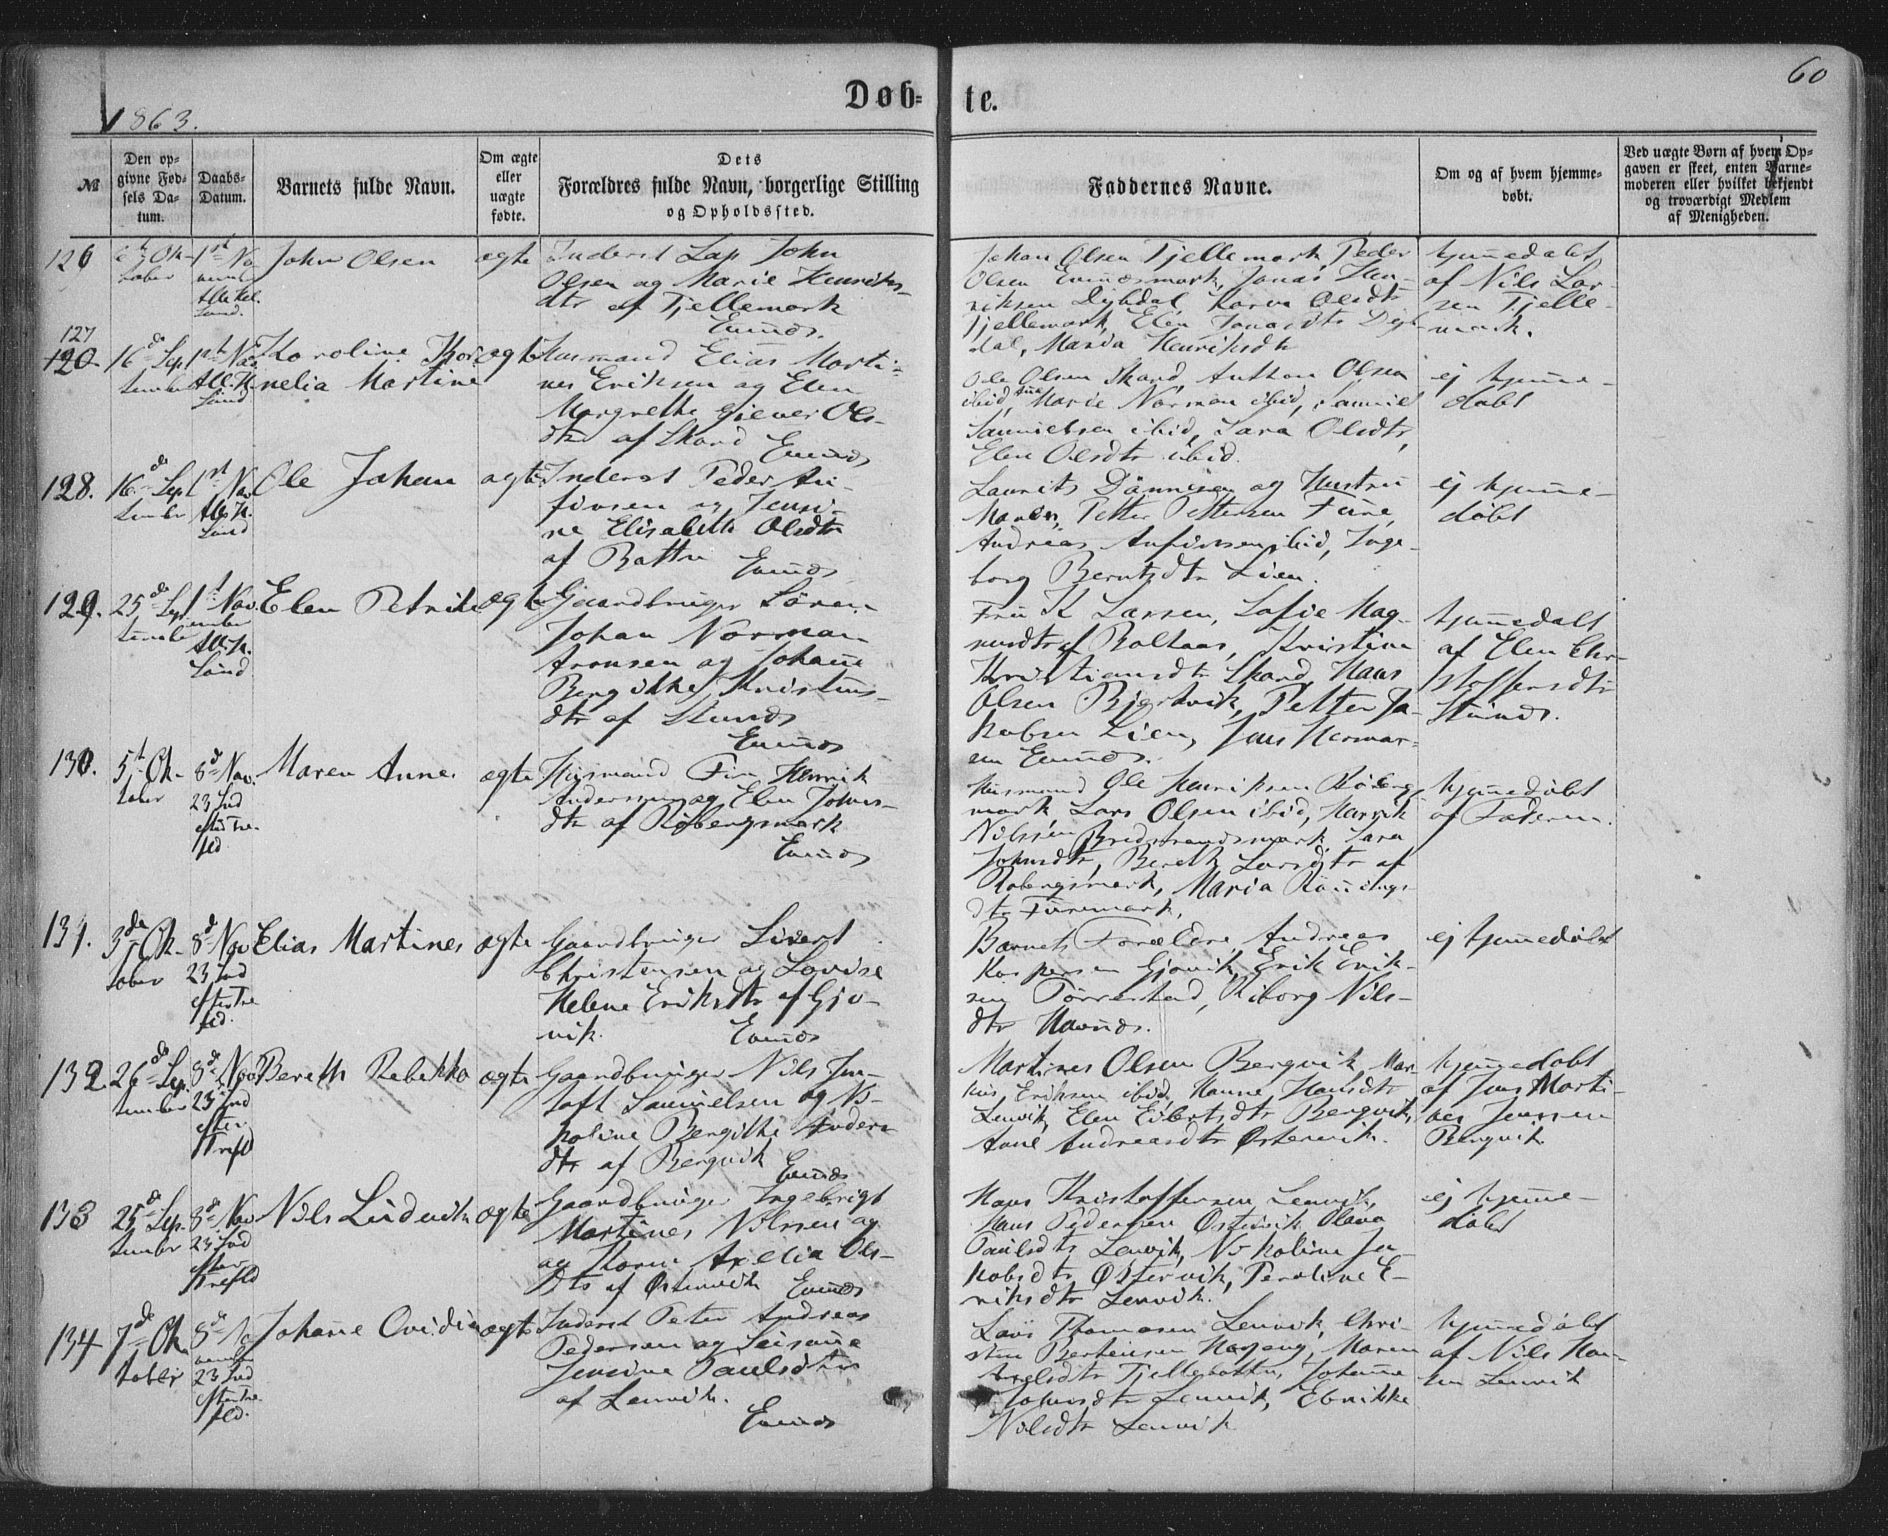 60
1863.
Døb= te.
№
Den op=
givne Fød=
sels Da=
tum.
Daabs=
Datum.
Barnets fulde Navn.
Om ægte
eller
uægte
fødte.
Dets
Forældres fulde Navn, borgerlige Stilling
og Opholdssted.
Faddernes Navne.
Om og af hvem hjemme=
døbt.
Ved uægte Børn af hvem Op=
gaven er skeet, enten Barne=
moderen eller hvilket bekjendt
og troværdigt Medlem
af Menigheden.
126
Ok-
tober
1st No
John Olsen
ægte
Inderst Lap John
Olsen og Marie Henriks-
dtr af Tjellemark
Evenæs.
Johan Olsen Tjellemark, Peder
Olsen Evenæsmark, Jonas Hen-
riksen Dybdal, Karen Olsdtr
Tjellemark, Elen Jonasdtr Dyb
dal, Maria Henriksdtr
hjemmedøbt
af Nils Lar-
sen Tjelle-
mark.
127
120
16de Sep
tember
1st Nov
Karoline Kor
nelia Martine
ægte
Husmand Elias Marti-
nes Eriksen og Elen
Margrethe Giæver Ols-
dtr af Skard
Evenæs
Ole Olsen Skard, Anthon Olsen
ibid, Marie Norman ibid, Samuel
Samuelsen ibid, Sara Olsdtr,
Elen Olsdtr ibid.
ej hjemme-
døbt
128.
16de Sep
tember
1st Nov
Ole Johan
ægte
Inderst Peder An-
finsen og Jensi-
ne Elisabeth Olsdtr
af Botten
Evenæs
Laurits Dønnesen og Hustru
Maren, Petter Pettersen
Andreas Anfinsen ibid, Inge-
borg Berntsdtr Lien.
ej hjemme-
døbt
129.
25de Sep
tember
1st Nov
Elen Petrikke
ægte
Gaardbruger Søren
Johan Norman
Aronsen og Johanne
Bergitthe Kristens-
dtr af Stunes
Evenæs
Fru K Larsen, Sofie Mag-
nusdtr af Boltaas, Kristine
Kristiansdtr Skard, Hans
Olsen Bjerkvik, Petter Ja-
kobsen Lien, Jens Norman-
sen Evenæs.
hjemmedøbt
af Elen Chr-
stoffersdtr
Stunes.
130.
5t Ok-
tober
8d Nov
23 Snd
efter Tre-
fld
Maren Anne
ægte
Husmand Fin Henrik
Andersen og Elen Johns-
dtr af Robergsmark
Evenæs
Husmand Ole Henriksen Roberg
mark, Lars Olsen ibid, Henrik
Nilsen Bredstrandsmark, Sara
Johnsdtr, Bereth Larsdtr af
Robergsmark, Maria
dtr
hjemmedøbt
af Faderen.
131.
3die Ok-
tober
8d Nov
23 Snd
efter Tre
fld.
Elias Martines
ægte
Gaardbruger Sivert
Christensen og Lovise
Helene Eriksdtr af Gjo-
vik.
Evenæs
Barnets Forældre, Andreas
Kaspersen Gjovik, Erik Erik-
sen Tørrestad, Kiborg Nils-
dtr
ej hjemmedøbt
132
26de Sep
tember
8d Nov
23 Snd
efter
Trefld
Bereth Rebekka
ægte
Gaardbruger Nils Jen-
toft Samuelsen og Ni-
koline Bergitthe Anders
dtr af Bergvik
Evenæs
Martines Olsen Bergvik, Mar-
kus Eriksen ibid, Hanne Hansdtr
Lenvik, Elen Eilertsdtr Bergvik,
Anne Andreasdtr Østervik.
hjemmedøbt
af Jens Marti-
nes Jensen
Bergvik
133
25de Sep
tember
8d Nov
23 Snd
efter
Trefld
Nils Ludevik
ægte
Gaardbruger Ingebrigt
Martines Nilssen og
og Karen Axelia Ols-
dtr af Østervik
Evenæs
Hans Kristoffersen Lenvik,
Hans Pedersen Østervik, Olava
Paulsdtr Lenvik, Nikoline Ja-
kobsdtr Østervik, Peroline E-
riksdtr Lenvik.
ej hjemme-
døbt
134
7de Ok
tober
8d No
vember
23 Snd
efter Tre
fld.
Johanne Ovidia
ægte
Inderst Peter Andreas
Pedersen og
Paulsdtr
af Lenvik.
Evenæs
Lars Thomasen Lenvik, Chri-
sten Berteusen, Maren
Johanne
Johnsdtr Lenvik,
Nilsdtr Lenvik
hjemmedøbt
af Nils Han-
sen Lenvik